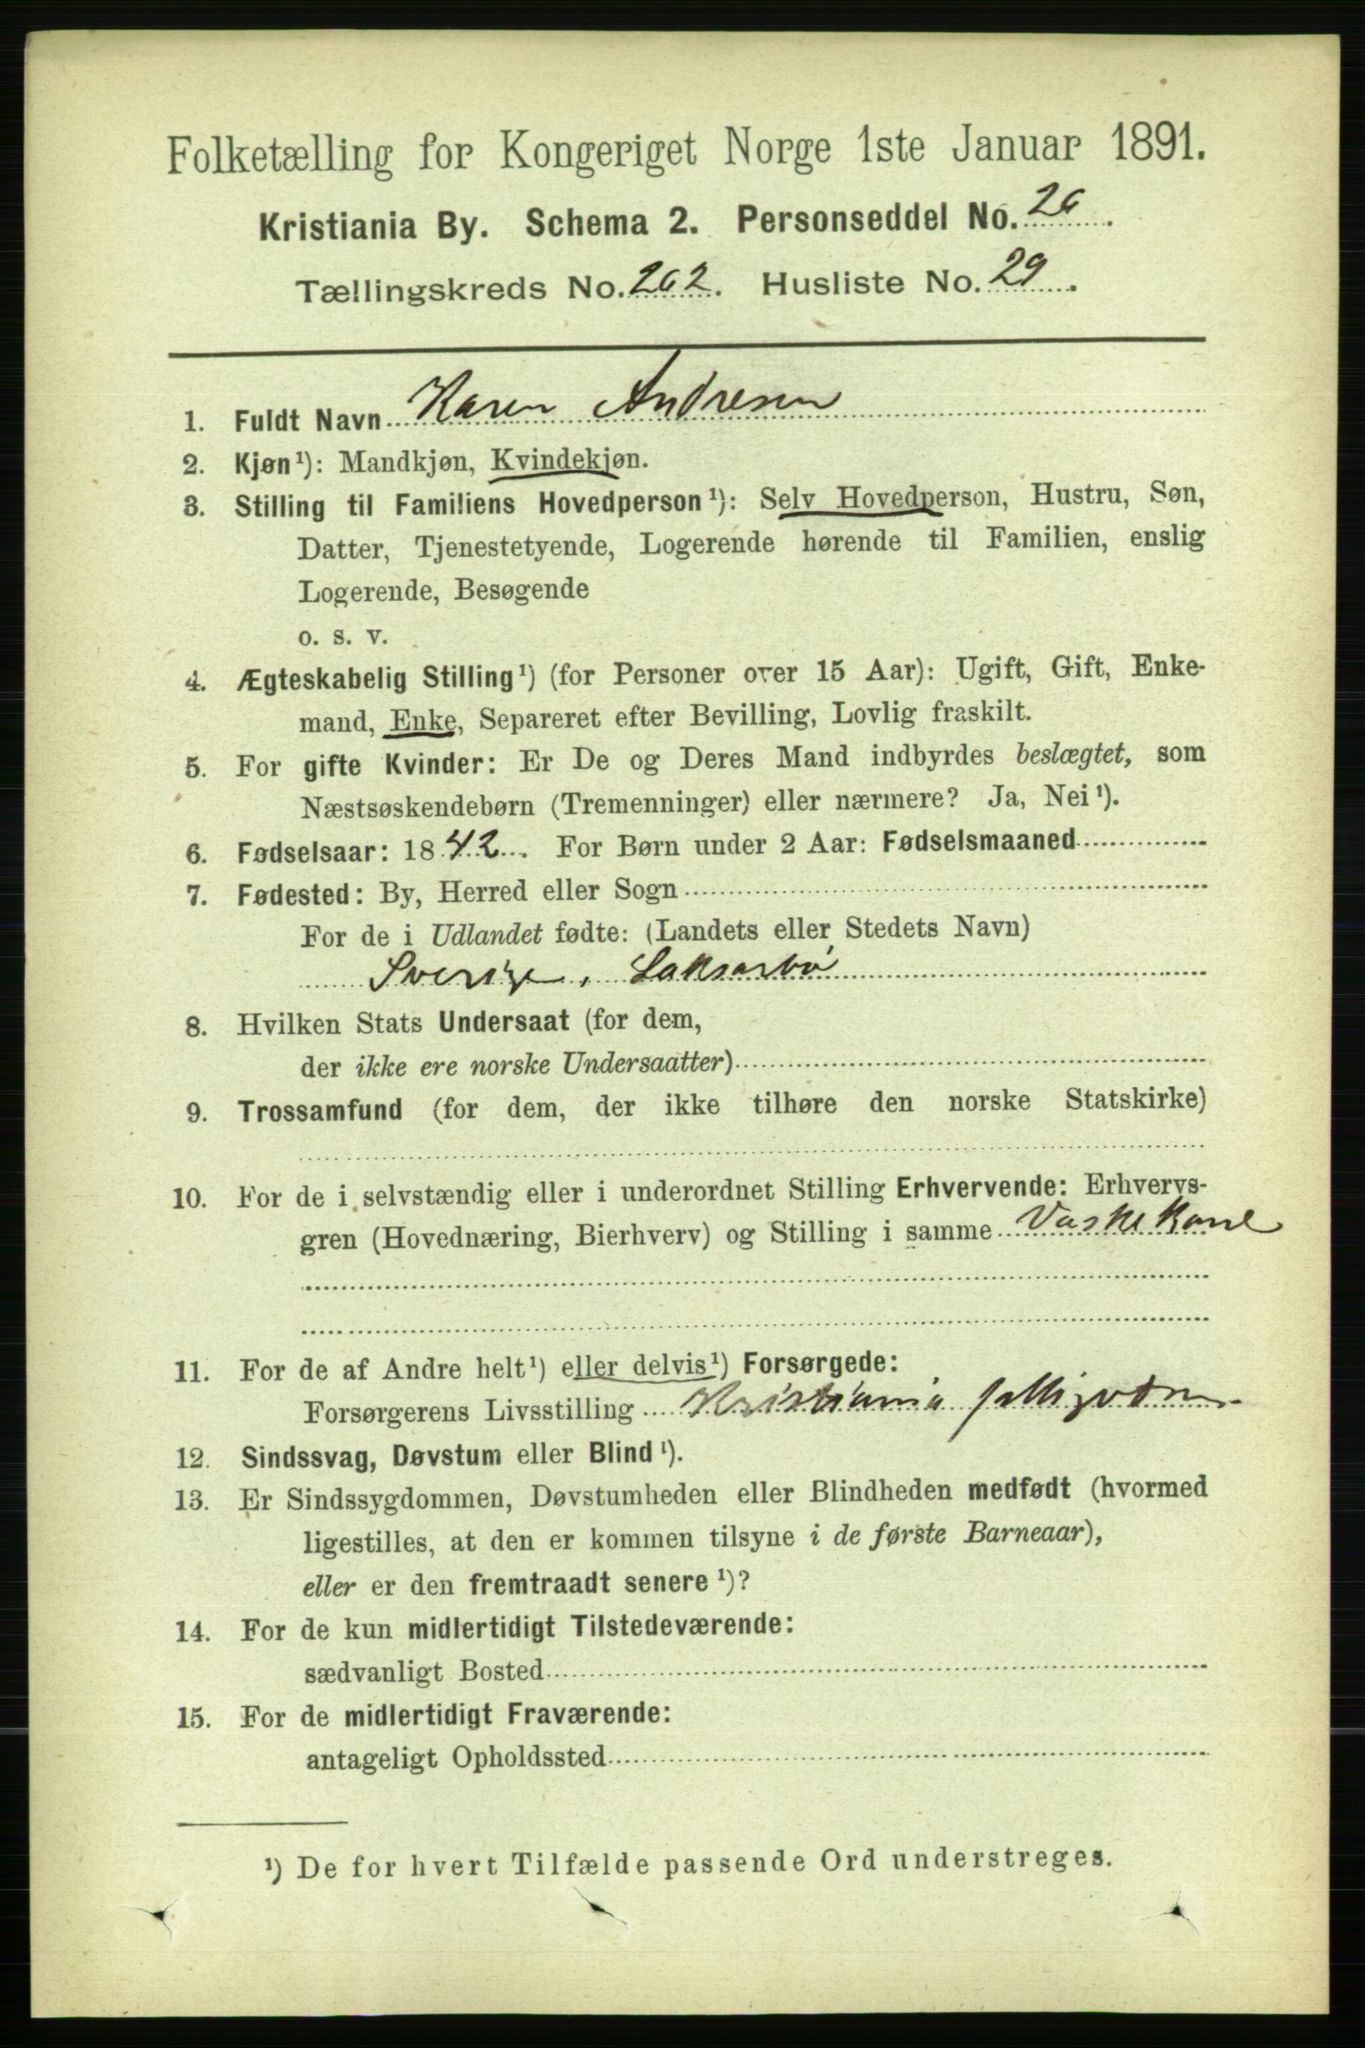 Folketælling for Kongeriget Norge 1ste Januar 1891.
Kristiania By. Schema 2. Personseddel No. 26.
Tællingskreds No. 262. Husliste No. 29.
1. Fuldt Navn Karen Andresen
2. Kjøn¹): Mandkjøn, Kvindekjøn.
3. Stilling til Familiens Hovedperson¹): Selv Hovedperson, Hustru, Søn,
Datter, Tjenestetyende, Logerende hørende til Familien, enslig
Logerende, Besøgende
o. s. v.
4. Ægteskabelig Stilling¹) (for Personer over 15 Aar): Ugift, Gift, Enke-
mand, Enke, Separeret efter Bevilling, Lovlig fraskilt.
5. For gifte Kvinder: Er De og Deres Mand indbyrdes beslægtet, som
Næstsøskendebørn (Tremenninger) eller nærmere? Ja, Nei¹).
6. Fødselsaar: 1842. For Børn under 2 Aar: Fødselsmaaned
7. Fødested: By, Herred eller Sogn
For de i Udlandet fødte: (Landets eller Stedets Navn)
Sverige,
8. Hvilken Stats Undersaat (for dem,
der ikke ere norske Undersaatter)
9. Trossamfund (for dem, der ikke tilhøre den norske Statskirke)
10. For de i selvstændig eller i underordnet Stilling Erhvervende: Erhvervs-
gren (Hovednæring, Bierhverv) og Stilling i samme Vaskekone
11. For de af Andre helt¹) eller delvis¹) Forsørgede:
Forsørgerens Livsstilling Kristiania
12. Sindssvag, Døvstum eller Blind¹).
13. Er Sindssygdommen, Døvstumheden eller Blindheden medfødt (hvormed
ligestilles, at den er kommen tilsyne i de første Barneaar),
eller er den fremtraadt senere¹)?
14. For de kun midlertidigt Tilstedeværende:
sædvanligt Bosted
15. For de midlertidigt Fraværende:
antageligt Opholdssted
¹) De for hvert Tilfælde passende Ord understreges.